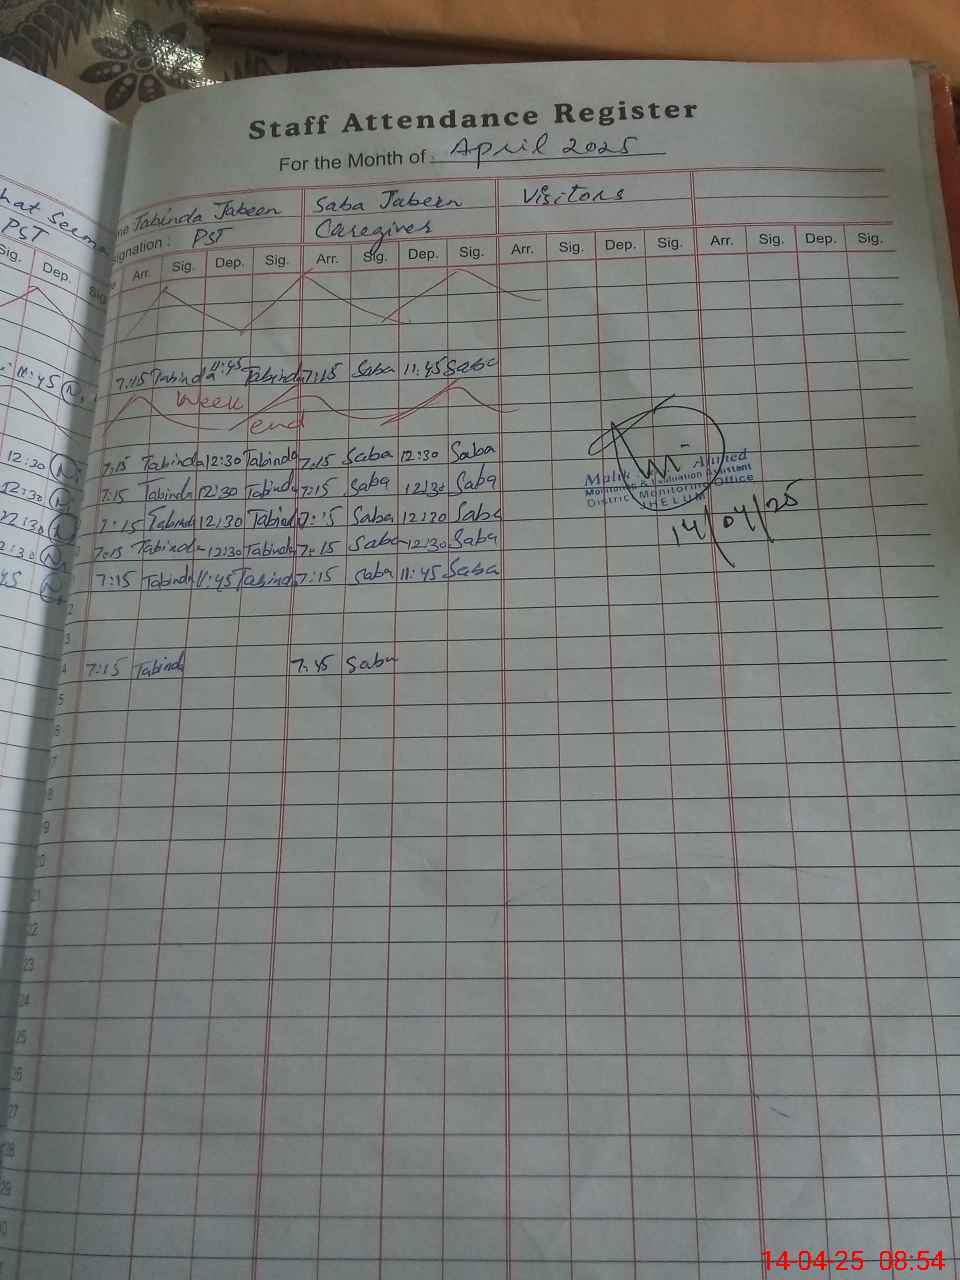 Staff Attendance Register
For the Month of April 2025
PST
Tabinda Jabeen Saba Jabeen Visitors
signation : PST Caregiver
Sig. Dep. Sig.
Arr. Sig. Dep. Sig. Arr. Sig. Dep. Sig. Arr. Sig. Dep. Sig. Arr. Sig. Dep. Sig.
11:45 N.
7:15 Tabinda 11:45 Tabinda 7:15 Saba 11:45 Saba
Week end
12:30 N. 7:15 Tabinda 12:30 Tabinda 7:15 Saba 12:30 Saba
12:30 N 7:15 Tabinda 12:30 Tabinda 7:15 Saba 12:30 Saba
12:30 N 7:15 Tabinda 12:30 Tabinda 7:15 Saba 12:30 Saba
2:30 N 7:15 Tabinda 12:30 Tabinda 7:15 Saba 12:30 Saba
45 N 7:15 Tabinda 11:45 Tabinda 7:15 Saba 11:45 Saba
Malik
Monitoring & Evaluation Assistant
District Monitoring Office
JHELUM
14/04/25
2
3
4 7:15 Tabinda 7:45 Saba
5
6
7
8
9
20
21
22
23
24
25
26
27
28
29
30
14-04-25 08:54